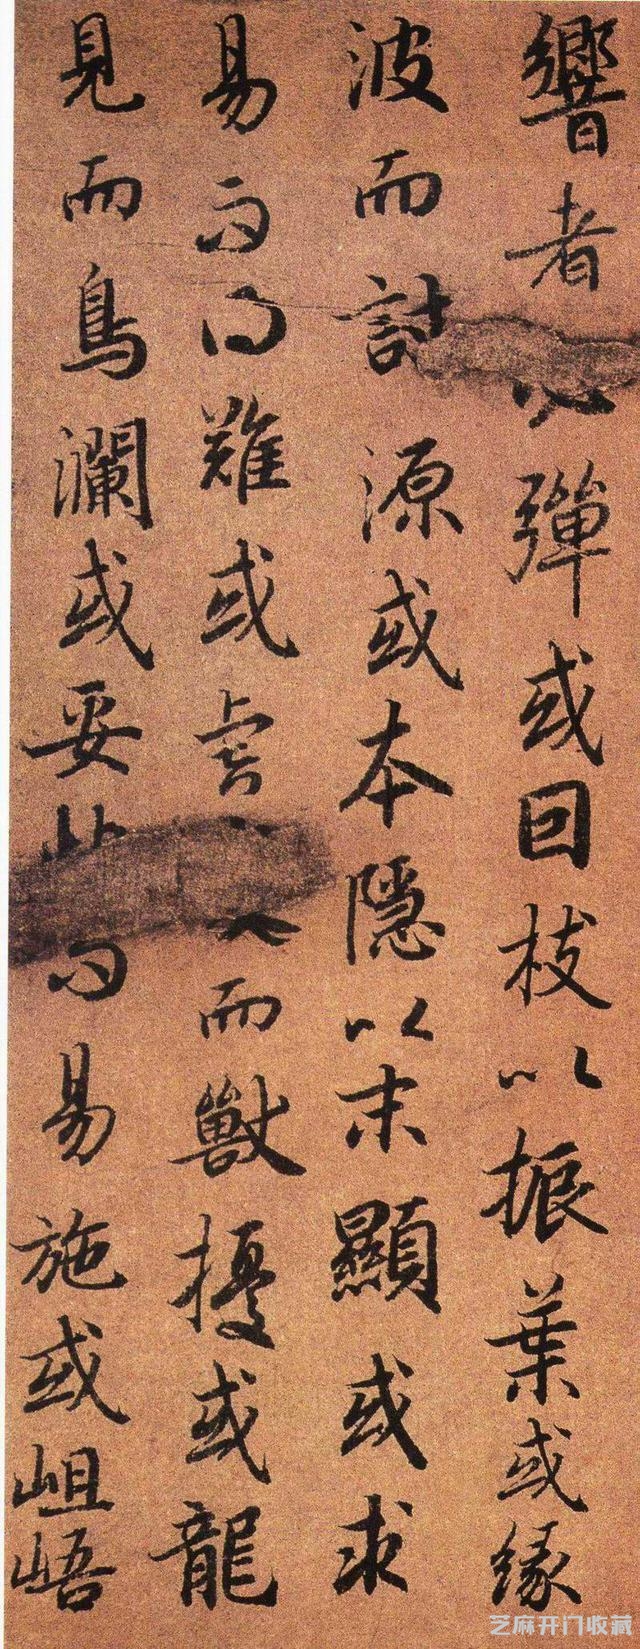 響者彈或因枝以振葉或緣
波而討源或本隱以末顯或求
易而得難或虎而獸擾或龍
見而鳥瀾或妥而易施或岨峿
芝麻开门收藏